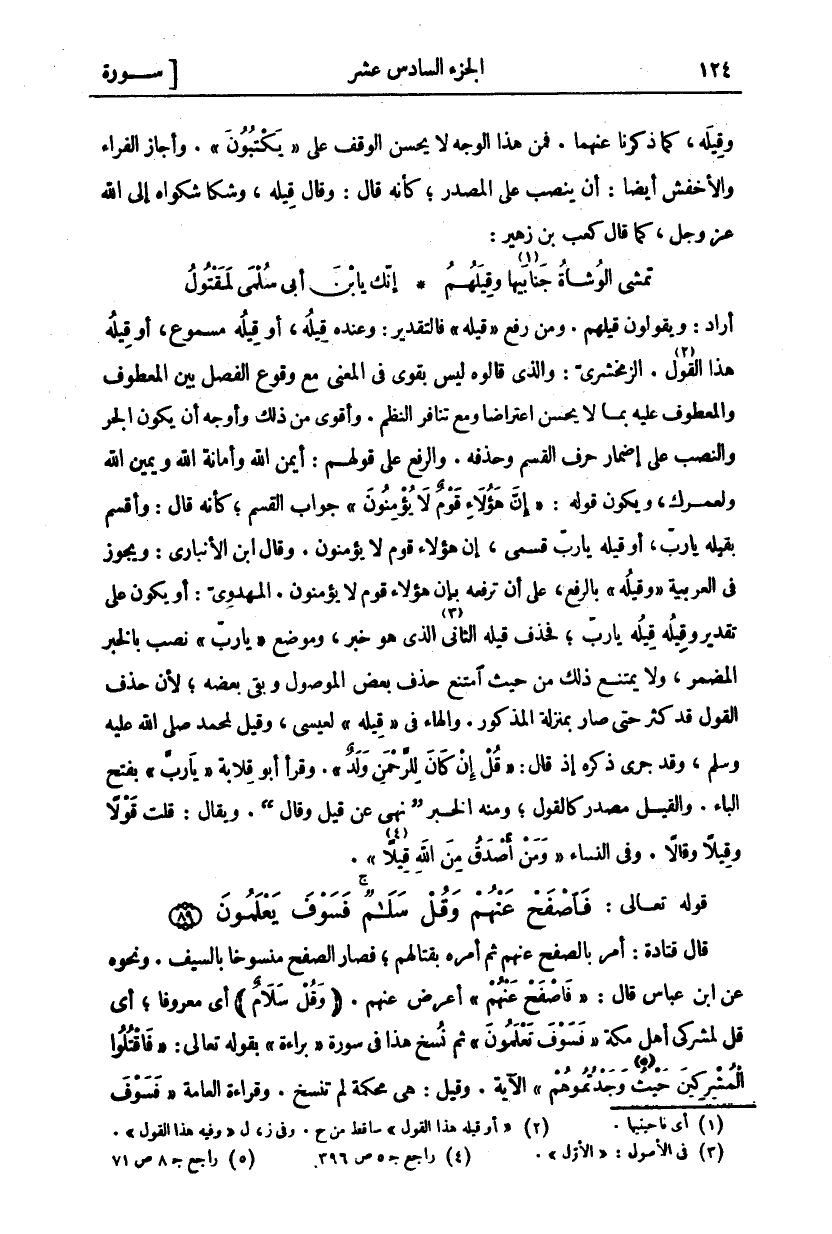 ١٢٤ الجزء السادس عشر [ ســورة
وقِيلَه ، كما ذكرنا عنهما . فمن هذا الوجه لا يحسن الوقف على « يَكْتُبُونَ » . وأجاز الفراء
والأخفش أيضا : أن ينصب على المصدر ؛ كأنه قال : وقال قِيله ، وشكا شكواه إلى الله
عز وجل ، كما قال كعب بن زهير :
تمشى الوُشاةُ جَنابيها(١) وقِيلَهُمُ * إنّك يابْنَ أبى سُلْمَى لَمَقْتُولُ
أراد : ويقولون قيلهم . ومن رفع « قيله » فالتقدير : وعنده قِيلُه ، أو قِيلُه مسموع ، أو قِيلُه
هذا القول(٢) . الزمخشرىّ : والذى قالوه ليس بقوى فى المعنى مع وقوع الفصل بين المعطوف
والمعطوف عليه بما لا يحسن اعتراضا ومع تنافر النظم . وأقوى من ذلك وأوجه أن يكون الجر
والنصب على إضمار حرف القسم وحذفه . والرفع على قولهم : أيمن الله وأمانة الله ويمين الله
ولعمرك ، ويكون قوله : « إِنَّ هَؤُلَاءِ قَوْمٌ لَا يُؤْمِنُونَ » جواب القسم ؛ كأنه قال : وأقسم
بقيله ياربّ ، أو قيله ياربّ قسمى ، إن هؤلاء قوم لا يؤمنون . وقال ابن الأنبارى : ويجوز
فى العربية « وقيلُه » بالرفع ، على أن ترفعه بإن هؤلاء قوم لا يؤمنون . المهدوىّ : أو يكون على
تقدير وقِيلُه قِيلُه ياربّ ؛ فحذف قيله الثانى(٣) الذى هو خبر ، وموضع « ياربّ » نصب بالخبر
المضمر ، ولا يمتنع ذلك من حيث أمتنع حذف بعض الموصول وبقى بعضه ؛ لأن حذف
القول قد كثر حتى صار بمنزلة المذكور . والهاء فى « قيله » لعيسى ، وقيل لمحمد صلى الله عليه
وسلم ، وقد جرى ذكره إذ قال : « قُلْ إِنْ كَانَ لِلرَّحْمَنِ وَلَدٌ » . وقرأ أبو قلابة « يَاربَّ » بفتح
الباء . والقيل مصدر كالقول ؛ ومنه الخبر " نهى عن قيل وقال " . ويقال : قلت قَوْلًا
وقِيلًا وقالًا . وفى النساء « وَمَنْ أَصْدَقُ مِنَ اللهِ قِيلًا(٤) » .
قوله تعالى : فَاصْفَحْ عَنْهُمْ وَقُلْ سَلَـٰمٌ ۚ فَسَوْفَ يَعْلَمُونَ (٨٩)
قال قتادة : أمر بالصفح عنهم ثم أمره بقتالهم ؛ فصار الصفح منسوخا بالسيف . ونحوه
عن ابن عباس قال : « فَاصْفَحْ عَنْهُمْ » أعرض عنهم . ﴿ وَقُلْ سَلَامٌ ﴾ أى معروفا ؛ أى
قل لمشركى أهل مكة « فَسَوْفَ تَعْلَمُونَ » ثم نُسخ هذا فى سورة « براءة » بقوله تعالى : « فَاقْتُلُوا
الْمُشْرِكِينَ حَيْثُ وَجَدْتُمُوهُمْ(٥) » الآية . وقيل : هى محكمة لم تنسخ . وقراءة العامة « فَسَوْفَ
(١) أى ناحيتيها . (٢) « أو قيله هذا القول » ساقط من ح . وفى ز ، ل « وفيه هذا القول » .
(٣) فى الأصول : « الأوّل » . (٤) راجع جـ ٥ ص ٣٩٦. (٥) راجع جـ ٨ ص ٧١